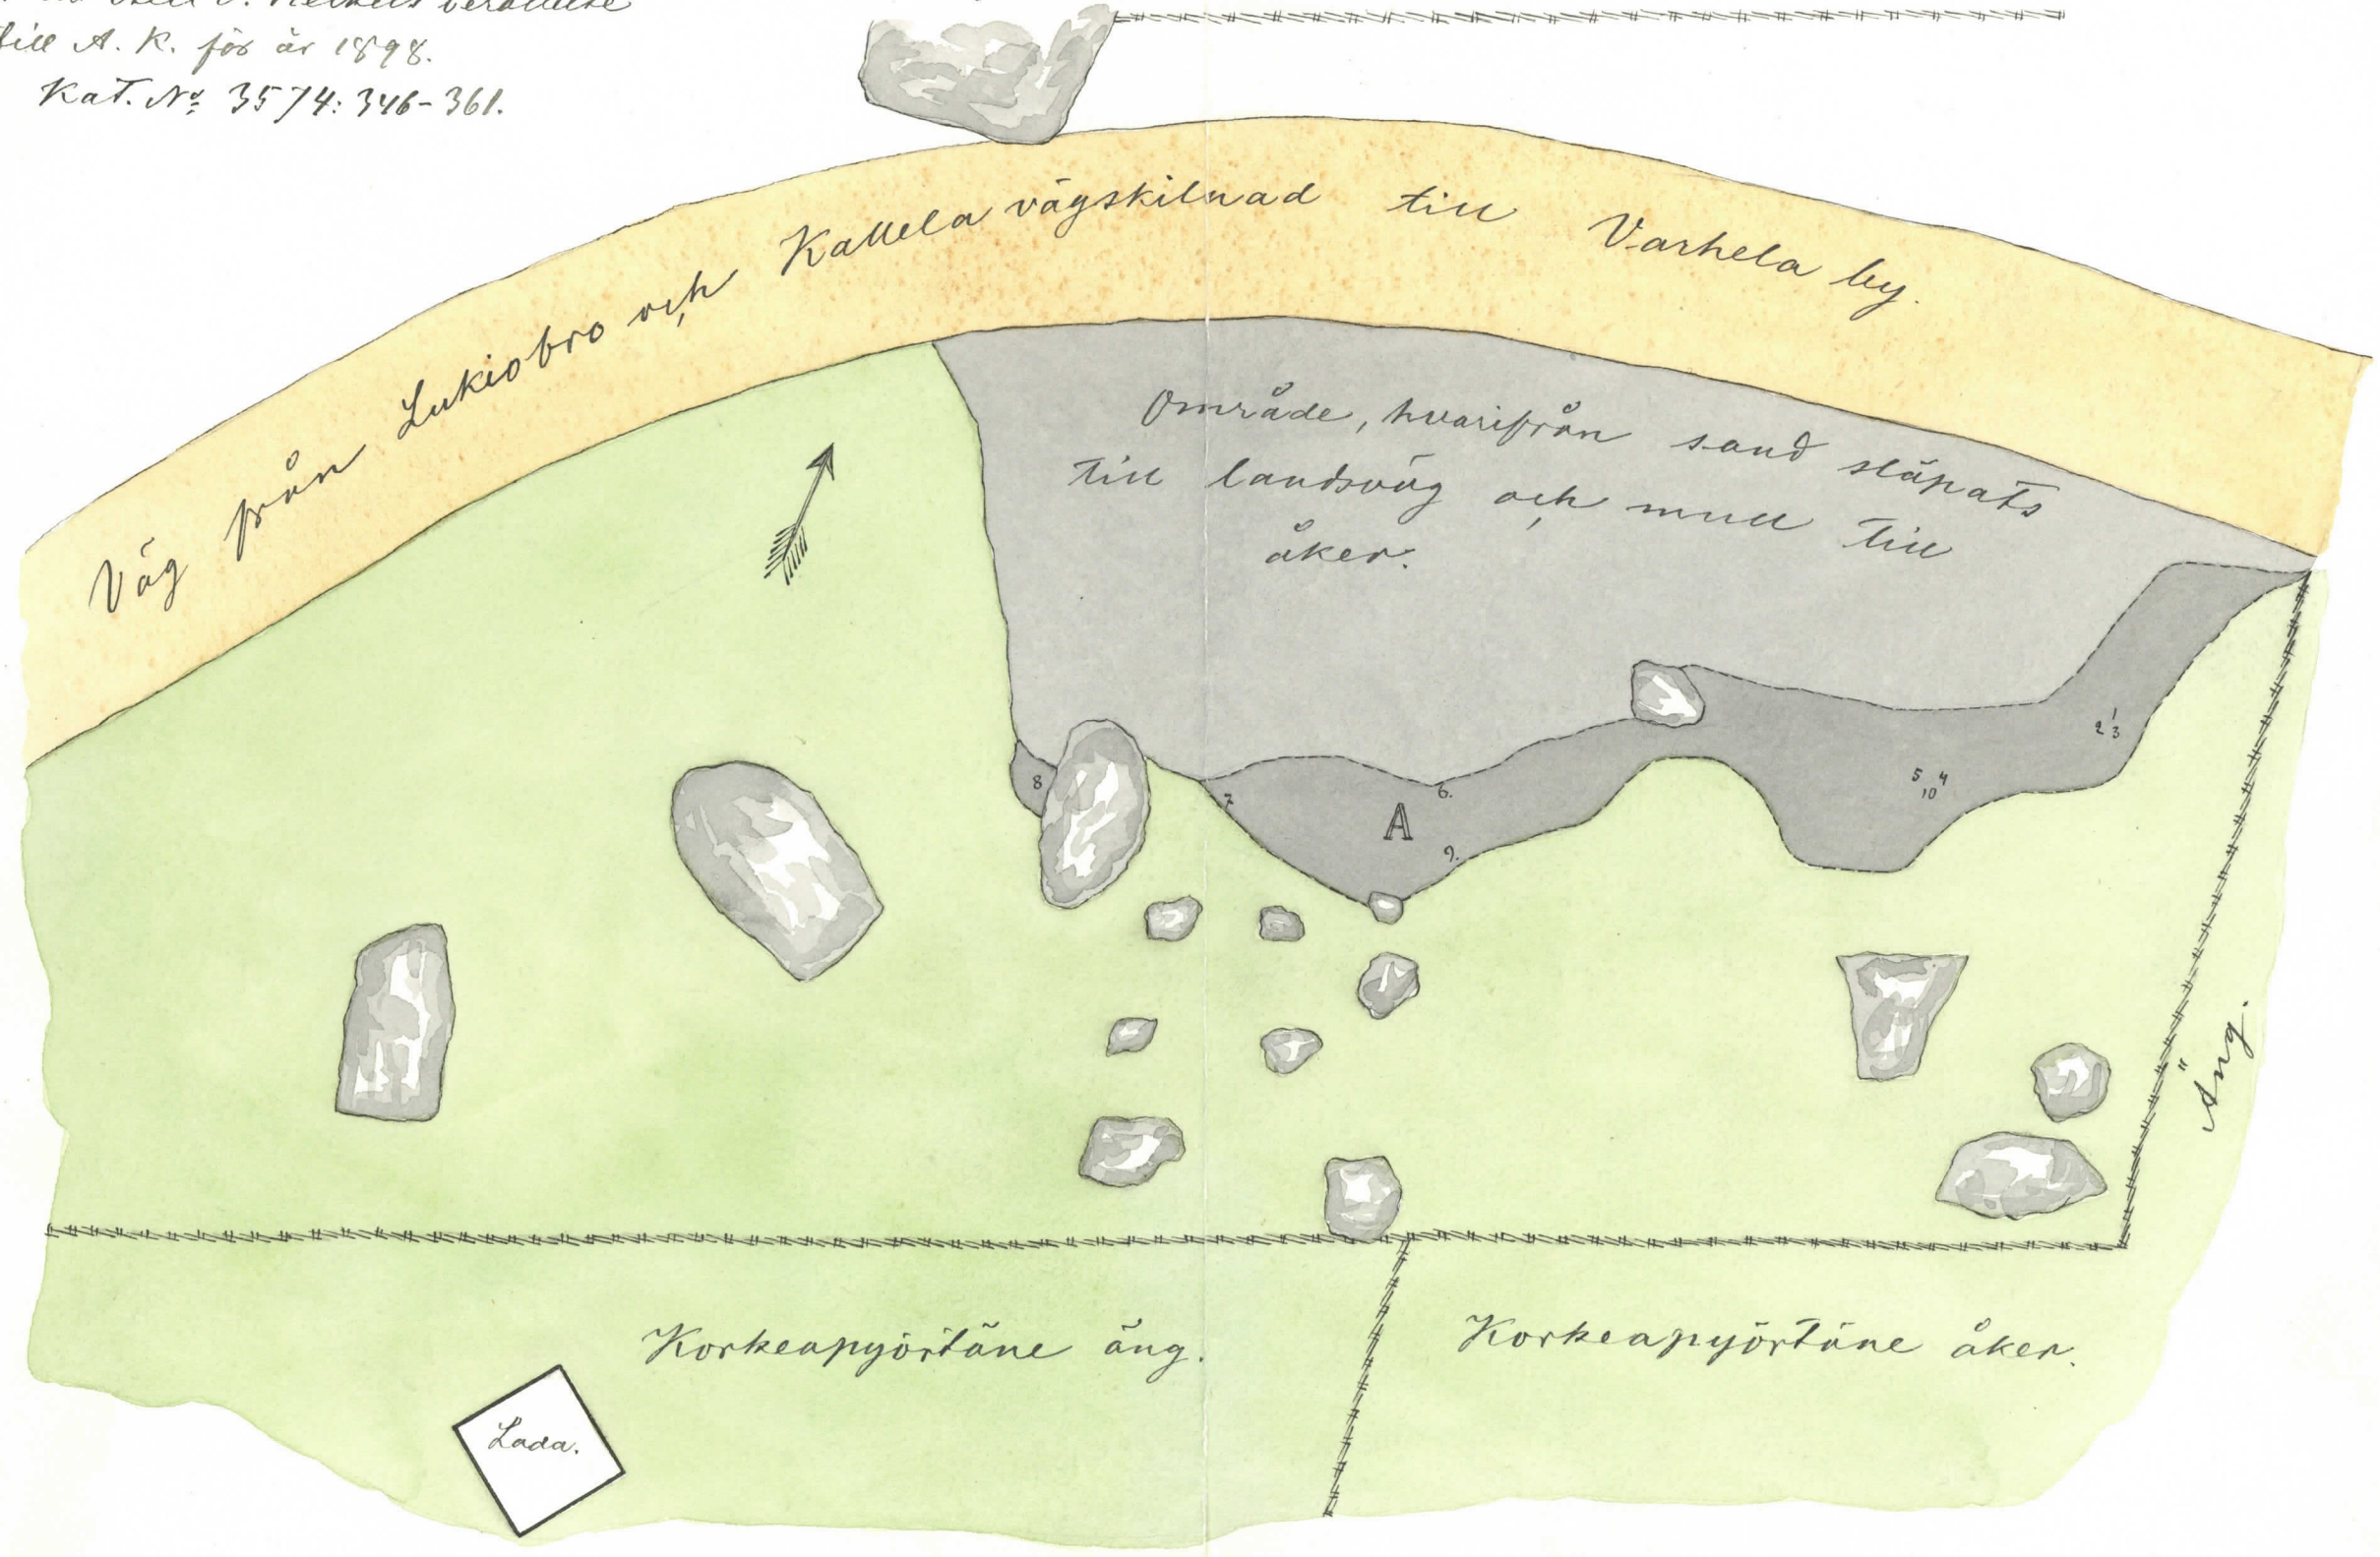 berättelse
till A. K. för år 1898.
Kat. No 3574: 346-361.
Väg från Lukiobro och Kallela vägskilnad till Varhela by.
Område, hvarifrån sand släpats
till landsväg och mull till
åker.
1
2 3
5 4
10
8
7
6.
A
9.
Äng.
Korkeapyörtäne äng.
Korkeapyörtäne åker.
Lada.